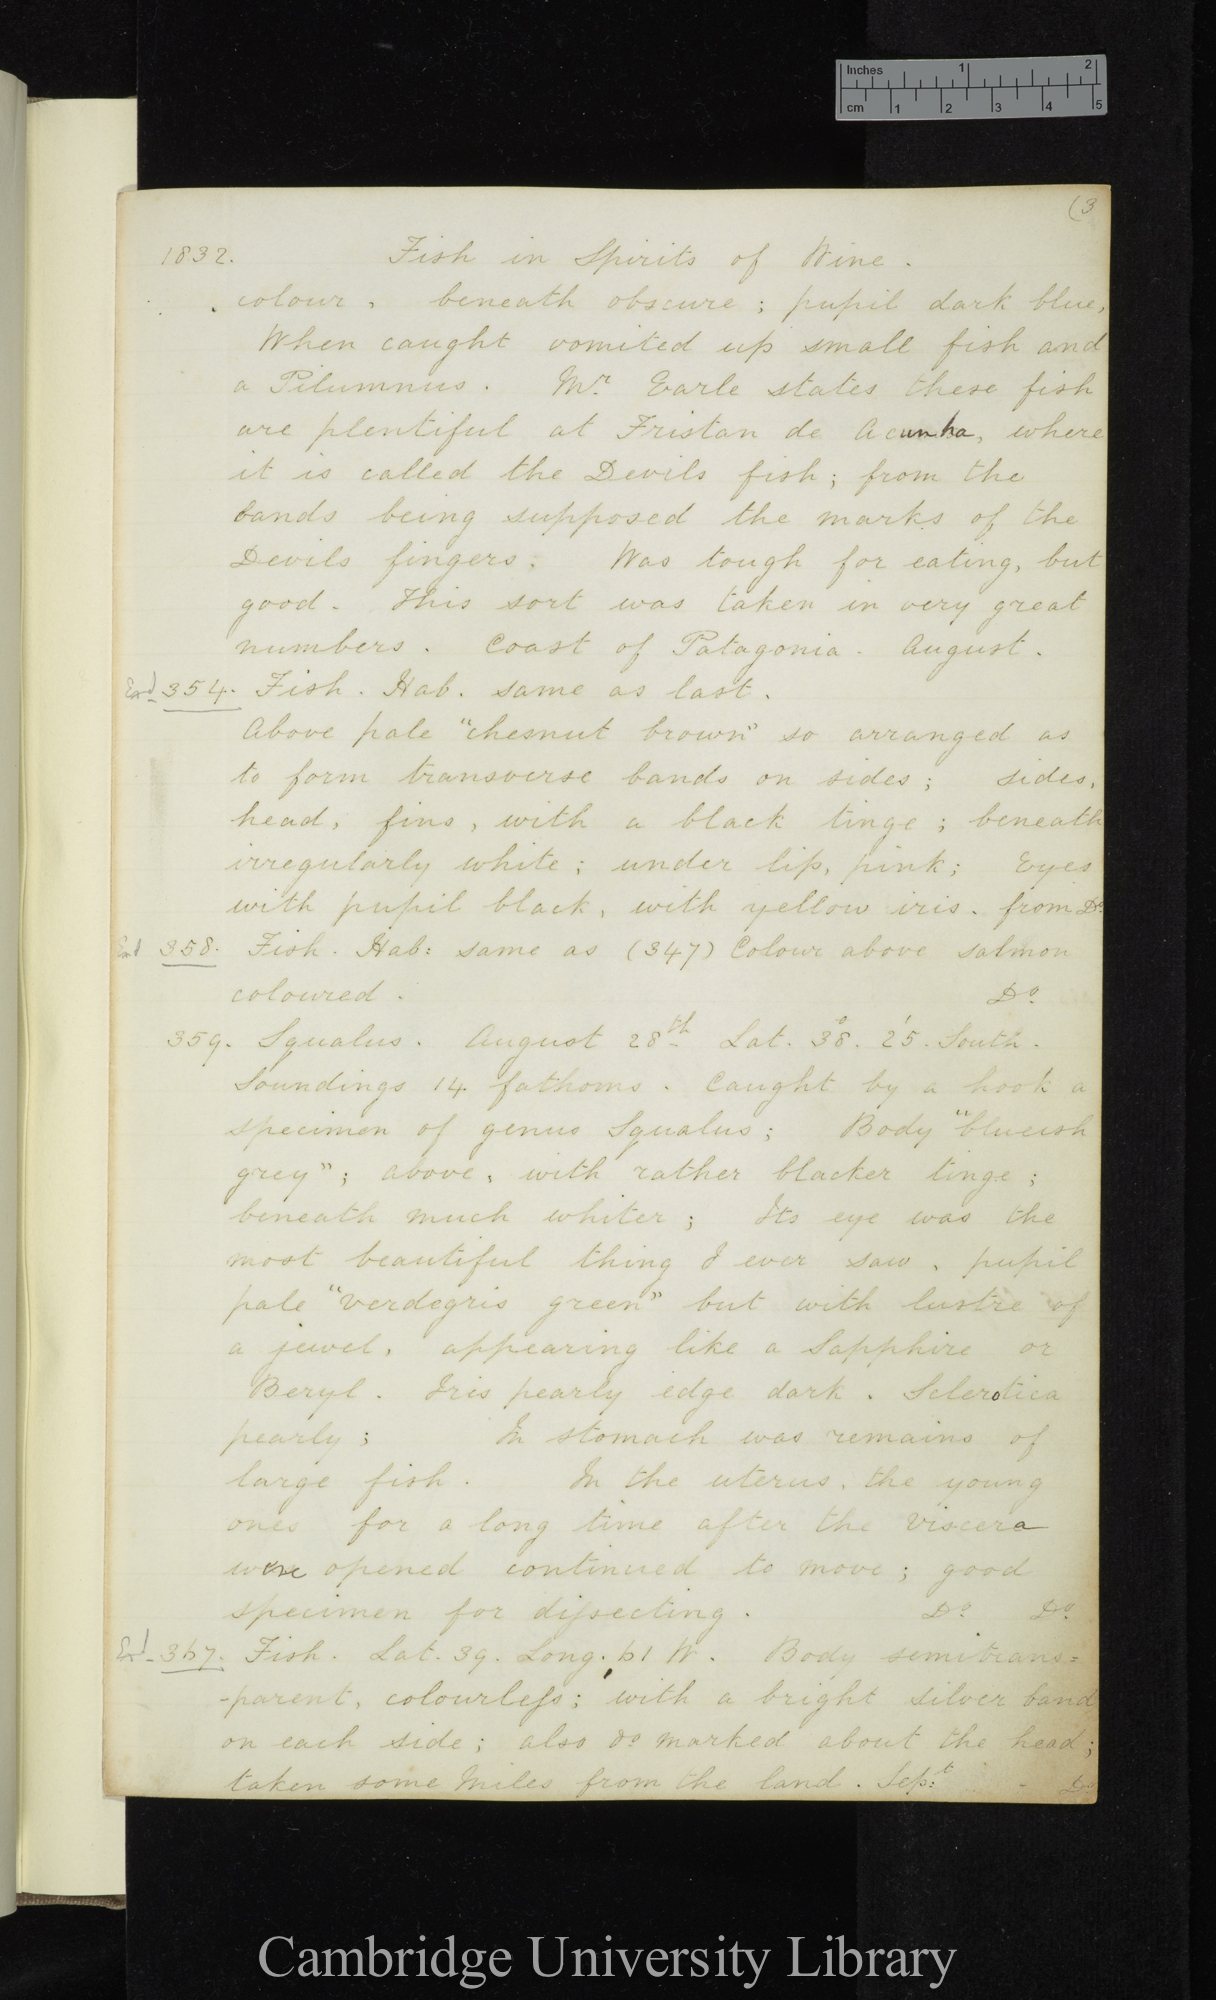 Inches 1 2
cm 1 2 3 4 5
(3
1832. Fish in Spirits of Wine.
colour, beneath obscure; pupil dark blue,
When caught vomited up small fish and
a Pilumnus. Mr. Earle states these fish
are plentiful at Tristan de Acunha, where
it is called the Devils fish; from the
bands being supposed the marks of the
Devils fingers. Was tough for eating, but
good. This sort was taken in very great
numbers. Coast of Patagonia. August.
354. Fish. Hab. same as last.
Above pale "chesnut brown" so arranged as
to form transverse bands on sides; sides,
head, fins, with a black tinge; beneath
irregularly white; under lip, pink; Eyes
with pupil black, with yellow iris. from Do
358. Fish. Hab: same as (347) Colour above salmon
coloured. Do.
359. Squalus. August 28th Lat. 38°. 25'. South.
Soundings 14 fathoms. Caught by a hook a
specimen of genus Squalus; Body "blueish
grey"; above, with rather blacker tinge;
beneath much whiter; Its eye was the
most beautiful thing I ever saw, pupil
pale "verdegris green" but with lustre of
a jewel, appearing like a Sapphire or
Beryl. Iris pearly edge dark. Sclerotica
pearly; In stomach was remains of
large fish. In the uterus, the young
ones for a long time after the viscera
were opened continued to move; good
specimen for dissecting. Do. Do.
367. Fish. Lat. 39. Long. 61 W. Body semitrans=
-parent, colourless; with a bright silver band
on each side; also do marked about the head;
taken some miles from the land. Sept: Do
Cambridge University Library